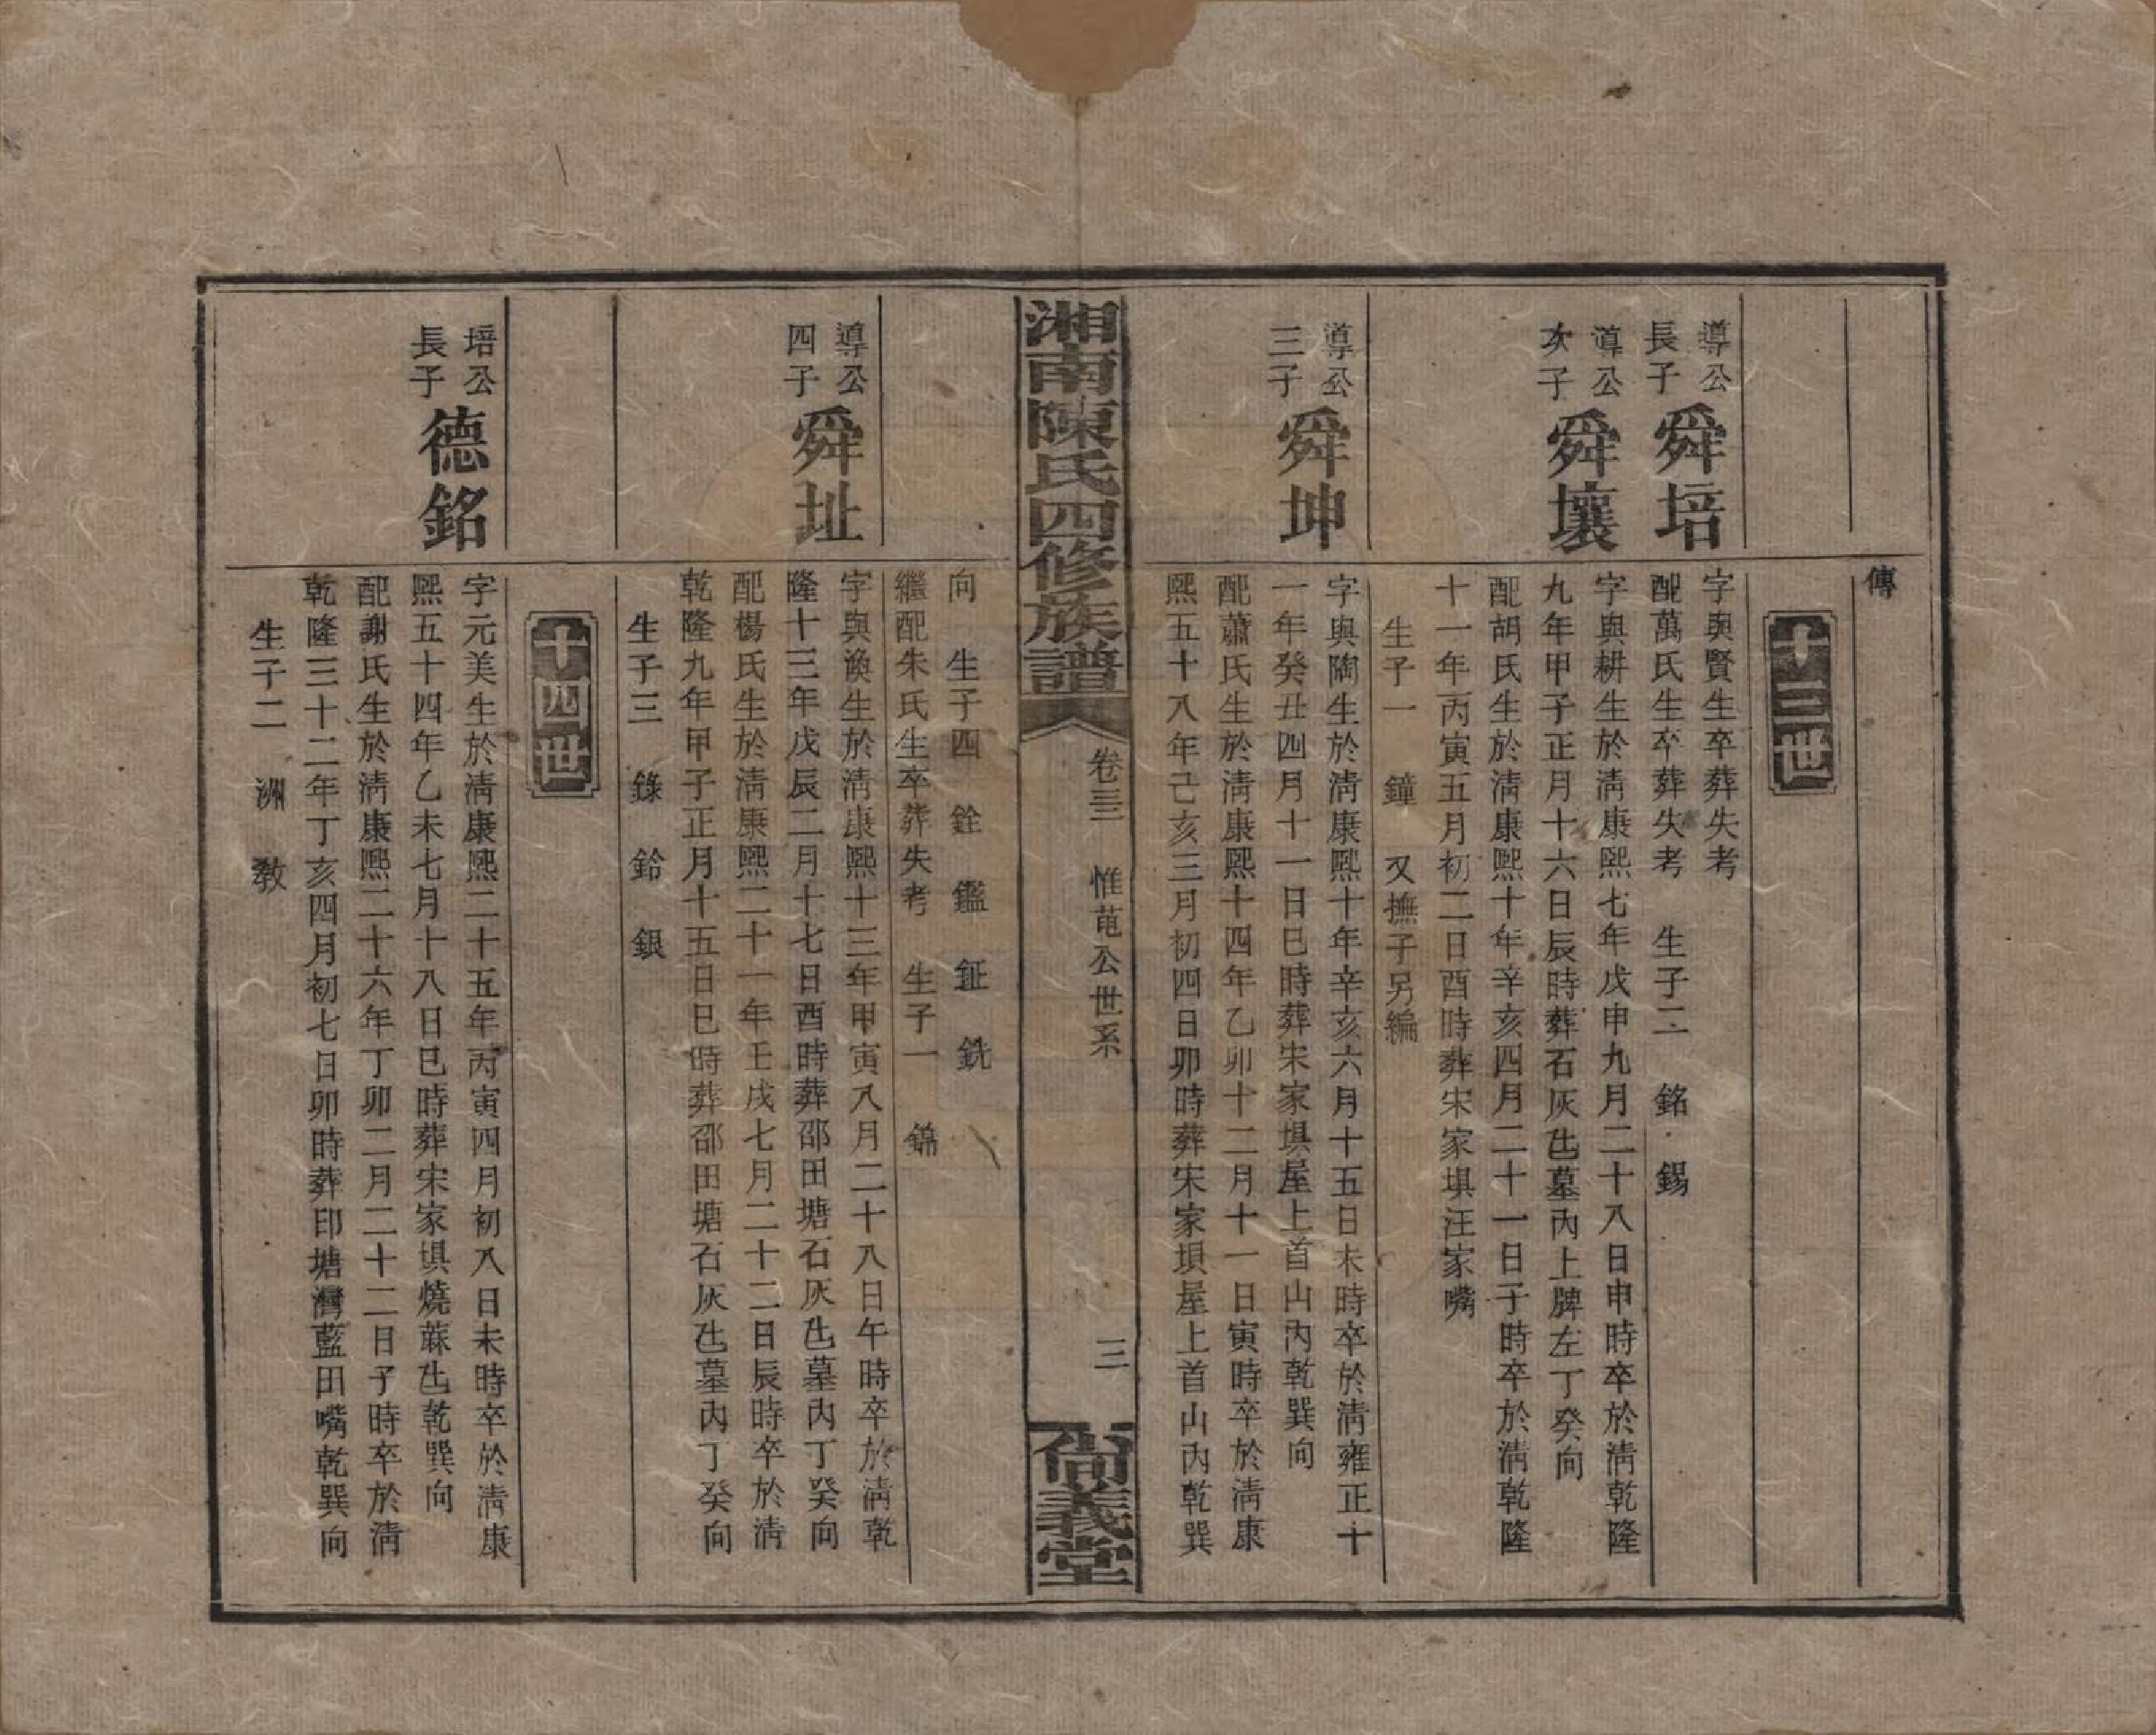 傳
十三世
導公
長子
舜培
字與賢生卒葬失考
配萬氏生卒葬失考 生子二 銘 錫
導公
次子
舜壤
字與耕生於清康熙七年戊申九月二十八日申時卒於清乾隆
九年甲子正月十六日辰時葬石灰凼墓內上脾左丁癸向
配胡氏生於清康熙十年辛亥四月二十一日子時卒於清乾隆
十一年丙寅五月初二日酉時葬宋家塤汪家嘴
生子一 鐘 又撫子另編
導公
三子
舜坤
字與陶生於清康熙十年辛亥六月十五日未時卒於清雍正十
一年癸丑四月十一日巳時葬宋家塤屋上首山內乾巽向
配蕭氏生於清康熙十四年乙卯十二月十一日寅時卒於清康
熙五十八年己亥三月初四日卯時葬宋家塤屋上首山內乾巽
湘南陳氏四修族譜
卷三 惟菴公世系
三
尚義堂
向 生子四 銓 鑑 鉦 銑
繼配朱氏生卒葬失考 生子一 錦
導公
四子
舜址
字與渙生於清康熙十三年甲寅八月二十八日午時卒於清乾
隆十三年戊辰二月十七日酉時葬邵田塘石灰凼墓內丁癸向
配楊氏生於清康熙二十一年壬戌七月二十二日辰時卒於清
乾隆九年甲子正月十五日巳時葬邵田塘石灰凼墓內丁癸向
生子三 錄 鈴 銀
十四世
培公
長子
德銘
字元美生於清康熙二十五年丙寅四月初八日未時卒於清康
熙五十四年乙未七月十八日巳時葬宋家塤燒蔴凼乾巽向
配謝氏生於清康熙二十六年丁卯二月二十二日子時卒於清
乾隆三十二年丁亥四月初七日卯時葬印塘灣藍田嘴乾巽向
生子二 洲 教